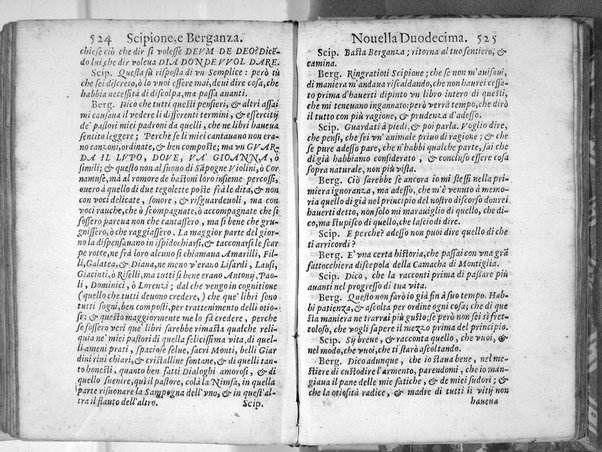 524 Scipione, e Berganza.
chiese ciò che dir si volesse DEVM DE DEO? Dicē-
do lui, che dir voleua DIA DONDE VVOL DARE.
Scip. Questa fù risposta di vn Semplice: però tù
che sei discreto, ò lo vuoi essere mai, dei dire cosa, che
habbia necessità di discolpa, ma passa auanti.
Berg. Dico che tutti questi pensieri, & altri assai
mi causaua il vedere li differenti termini, & essercitij
de' pastori miei padroni da quelli, che ne libri haueua
sentito leggere; Perche se li miei cantauano non era-
no canzoni, ordinate, & ben composte; ma vn GVAR-
DA IL LVPO, DOVE, VA' GIOANNA, ò
simili; & questo non al suono di Sāpogne Violini, ò Cor
namuse, mà al romore de bastoni loro insieme percossi,
ouero à quello di due tegolette poste frà le dita, & non
con voci delicate, sonore, & risguardeuoli, ma con
voci rauche, che ò scompagnate, ò accompagnate che si
fossero pareua non che cantassero, ma si bene che gru-
gnissero, ò che raggiassero. La maggior parte del gior-
no la dispensauano in ispidocchiarsi, & tacconarsi le scar
pe rotte, ne frà loro alcuno si chiamaua Amarilli, Fil-
li, Galatea, & Diana, ne meno v'erano Lisardi, Lausi,
Giacinti, ò Riselli, ma tutti si bene erano Antoni, Pao-
li, Dominici, ò Lorenzi; dal che vengo in cognitione
(quello che tutti deuono credere,) che que' libri sono
tutti sogni, ben composti, per trattenimento delli otio-
si; & questo maggiormente me lo fà credere, perche
se fossero veri que' libri sarebbe rimasta qualche reli-
quia ne' miei pastori di quella felicissima vita, di quel-
li ameni prati, spaciose selue, sacri Monti, belli Giar
dini riui chiari, & cristalline fontane, & di quelli tan-
to honesti, quanto ben fatti Dialoghi amorosi, & di
quello suenire, quì il pastore, colà la Nimfa, in quella
parte risuonare la Sampogna dell'vno, & in quest'al-
tra il flauto dell'altro.
Scip.
Nouella Duodecima. 525
Scip. Basta Berganza; ritorna al tuo sentiero, &
camina.
Berg. Ringratioti Scipione; che se non m'auisaui,
di maniera m'andaua riscaldando, che non haurei cessa-
to prima d'hauerti dipinto vn libro intero di questi,
che mi teneuano ingannato: però verrà tempo, che dirò
il tutto con più ragione, & prudenza d'adesso.
Scip. Guardati à piedi, & poi parla. Voglio dire,
che pensi, che sei vn'animale priuo di ragione; & che
se pure adesso pare, che n'habbi qualche parte, sai che
di già habbiamo considerato, & concluso essere cosa
sopra naturale, non più vista.
Berg. Ciò sarebbe se ancora io mi stessi nella pri-
miera ignoranza, ma adesso, che m'è venuto à memo-
ria quello di già nel principio del nostro discorso dourei
hauerti detto, non solo mi marauiglio di quello, che di-
co, ma stupisco di quello, che lascio di dire.
Scip. E perche? adesso non puoi dire quello che di
ti arricordi?
Berg. E' vna certa historia, che passai con vna grā
fattocchiera discepola della Camacha di Montiglia.
Scip. Dico, che la racconti prima di passare più
auanti nel progresso di tua vita.
Berg. Questo non farò io già fin à suo tempo. Habbi
patienza, & ascolta per ordine ogni cosa; che di que
sta maniera ne trarrai più gusto; se però non sei sì fret-
toloso, che vogli sapere il mezzo prima del principio.
Scip. Sij breue, & racconta quello, che vuoi, &
nel modo, che vuoi, che ti starò ascoltando.
Berg. Dico adunque, che io staua bene, nel me-
stiere di custodire l'armento, parendomi, che io man-
giaua il pane delle mie fatiche, & de miei sudori; &
che la otiosità radice, & madre di tutti li vitij non
haueua